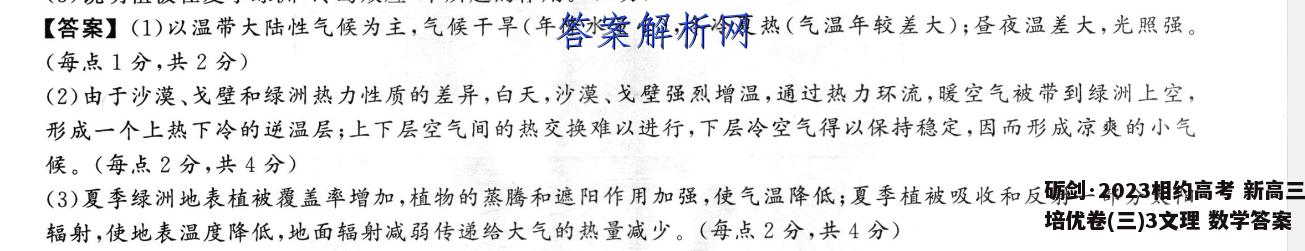 【答案】(1)以温带大陆性气候为主,气候干旱(年降水量少),冬冷夏热(气温年较差大);昼夜温差大,光照强。
答案解析网
(每点1分,共2分)
(2)由于沙漠、戈壁和绿洲热力性质的差异,白天,沙漠、戈壁强烈增温,通过热力环流,暖空气被带到绿洲上空,
形成一个上热下冷的逆温层;上下层空气间的热交换难以进行,下层冷空气得以保持稳定,因而形成凉爽的小气
候。(每点2分,共4分)
(3)夏季绿洲地表植被覆盖率增加,植物的蒸腾和遮阳作用加强,使气温降低;夏季植被吸收和反
砺剑·2023相约高考 新高三
辐射,使地表温度降低,地面辐射减弱传递给大气的热量减少。(每点2分,共4分)
培优卷(三)3文理 数学答案